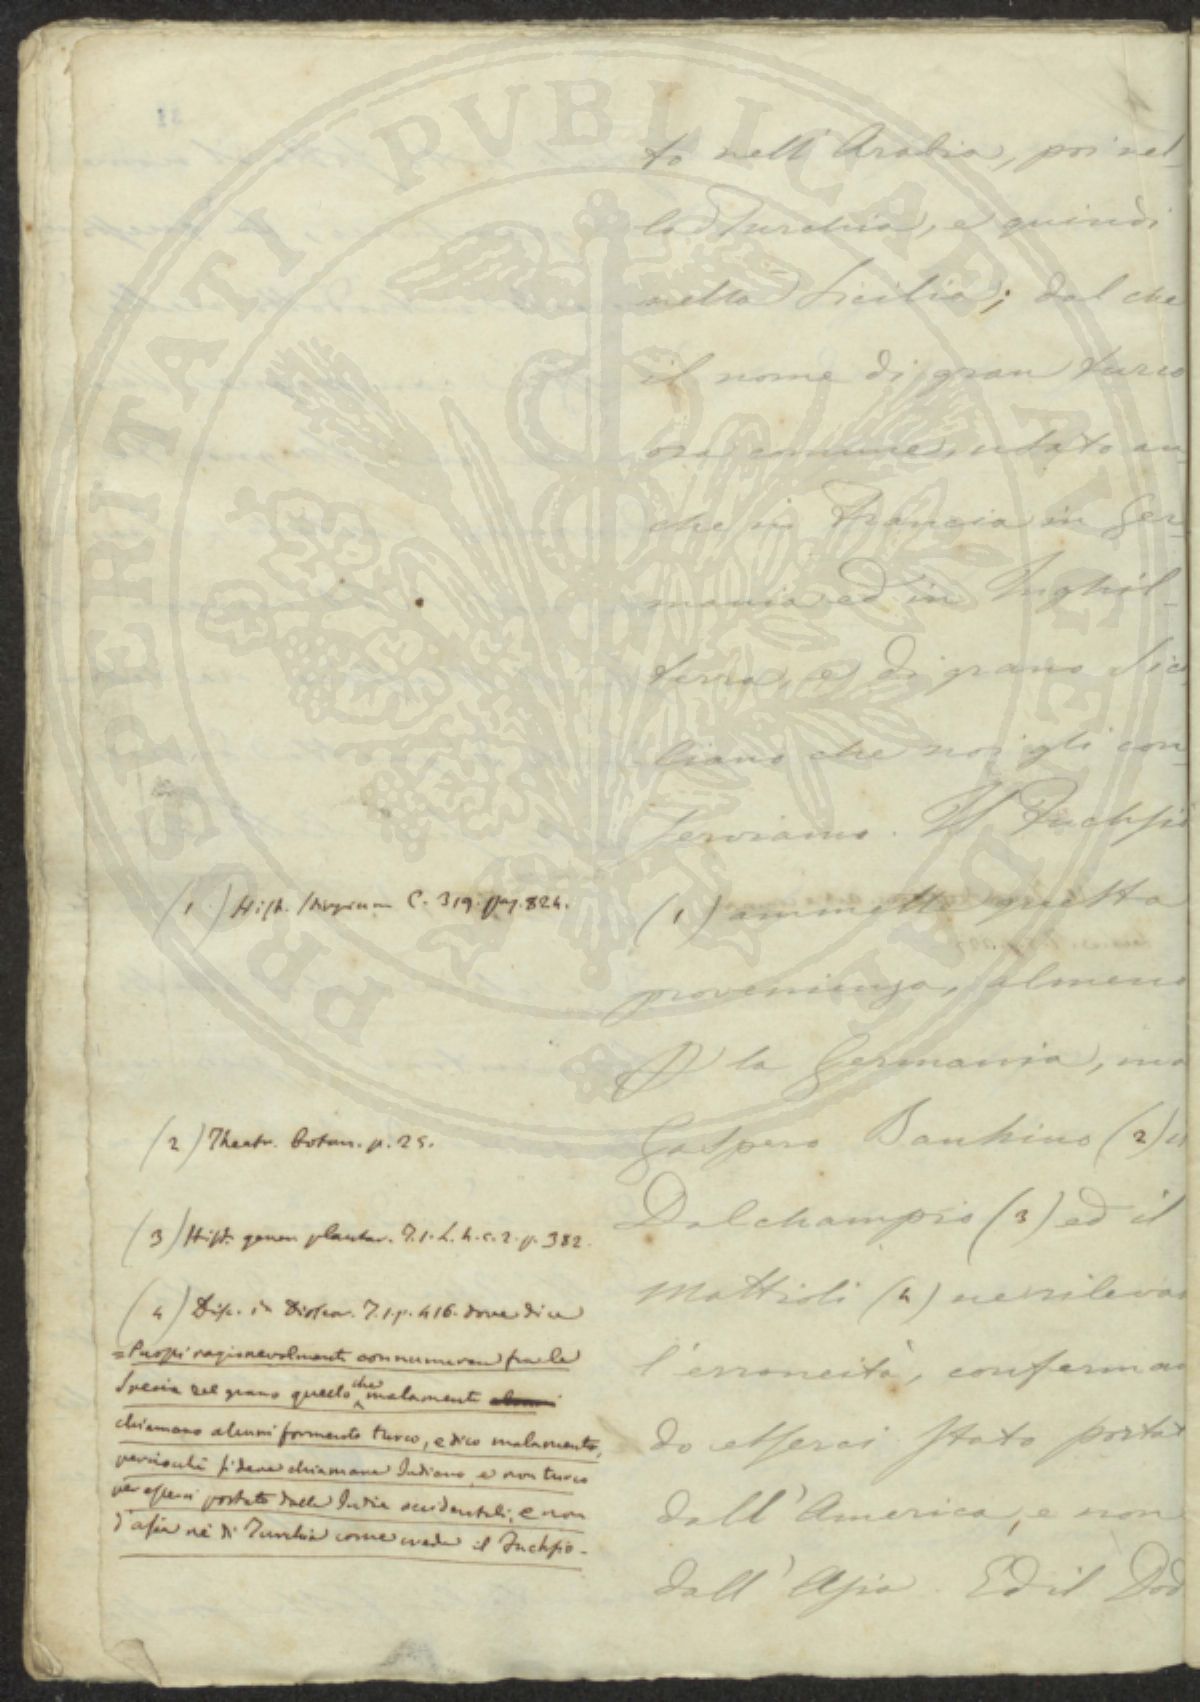 to nell' Arabia, poi nel-
la Turchia, e quindi
nella Sicilia; dal che
il nome di gran turco
ora comune, usato an-
che in Francia in Ger-
mania ed in Inghil-
terra, e di grano Sici
liano che noi gli con-
serviamo. Il Fuchsio
(1) ammette questa
provenienza, almeno
la Germania, ma
Gaspero Bauhino (2)
Dalchampio (3) ed il
Mattioli (4) ne rilevan
l'erroneità, conferman
do essersi stato portat
dall' America, e non
dall' Asia. Ed il Dod
(1) Hist. stirpium C. 319. pag. 824.
(2) Theatr. botan. p. 25.
(3) Hist. gener. plantar. T. 1. L. 4. c. 2. p. 382.
(4) Disc. in Dioscor. T. 1. p. 416. dove dice
=Puossi ragionevolmente connumerare fra le
Specie del grano quello che malamente alcuni
chiamano alcuni formento turco, e dico malamente,
perciochè si deve chiamare Indiano, e non turco
per essersi portato dalle Indie occidentali, e non
d'asia nè di Turchia come crede il Fuchsio-
PROSPERITATI PUBLICAE AUGENDAE